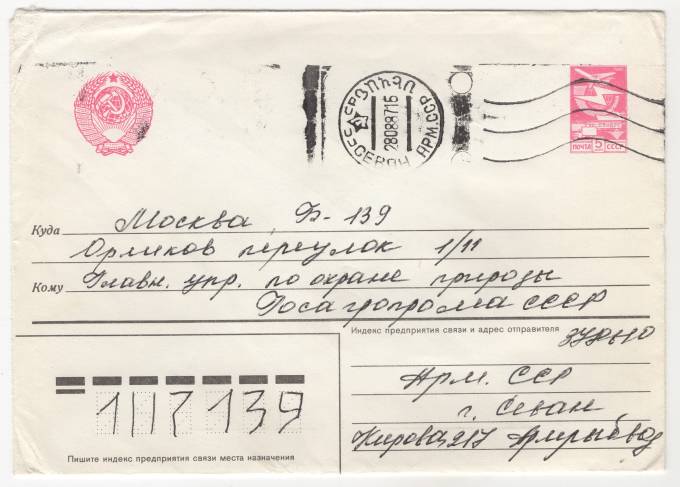 280887 16
СЕВАН АРМ.ССР
ПОЧТА 5К СССР
Куда Москва Б-139
Орликов переулок 1/11
Кому Главн. упр. по охране природы
Госагропрома СССР
Индекс предприятия связи и адрес отправителя
Арм. ССР
г. Севан
Кирова, 217 Армрыбвод
107139
Пишите индекс предприятия связи места назначения